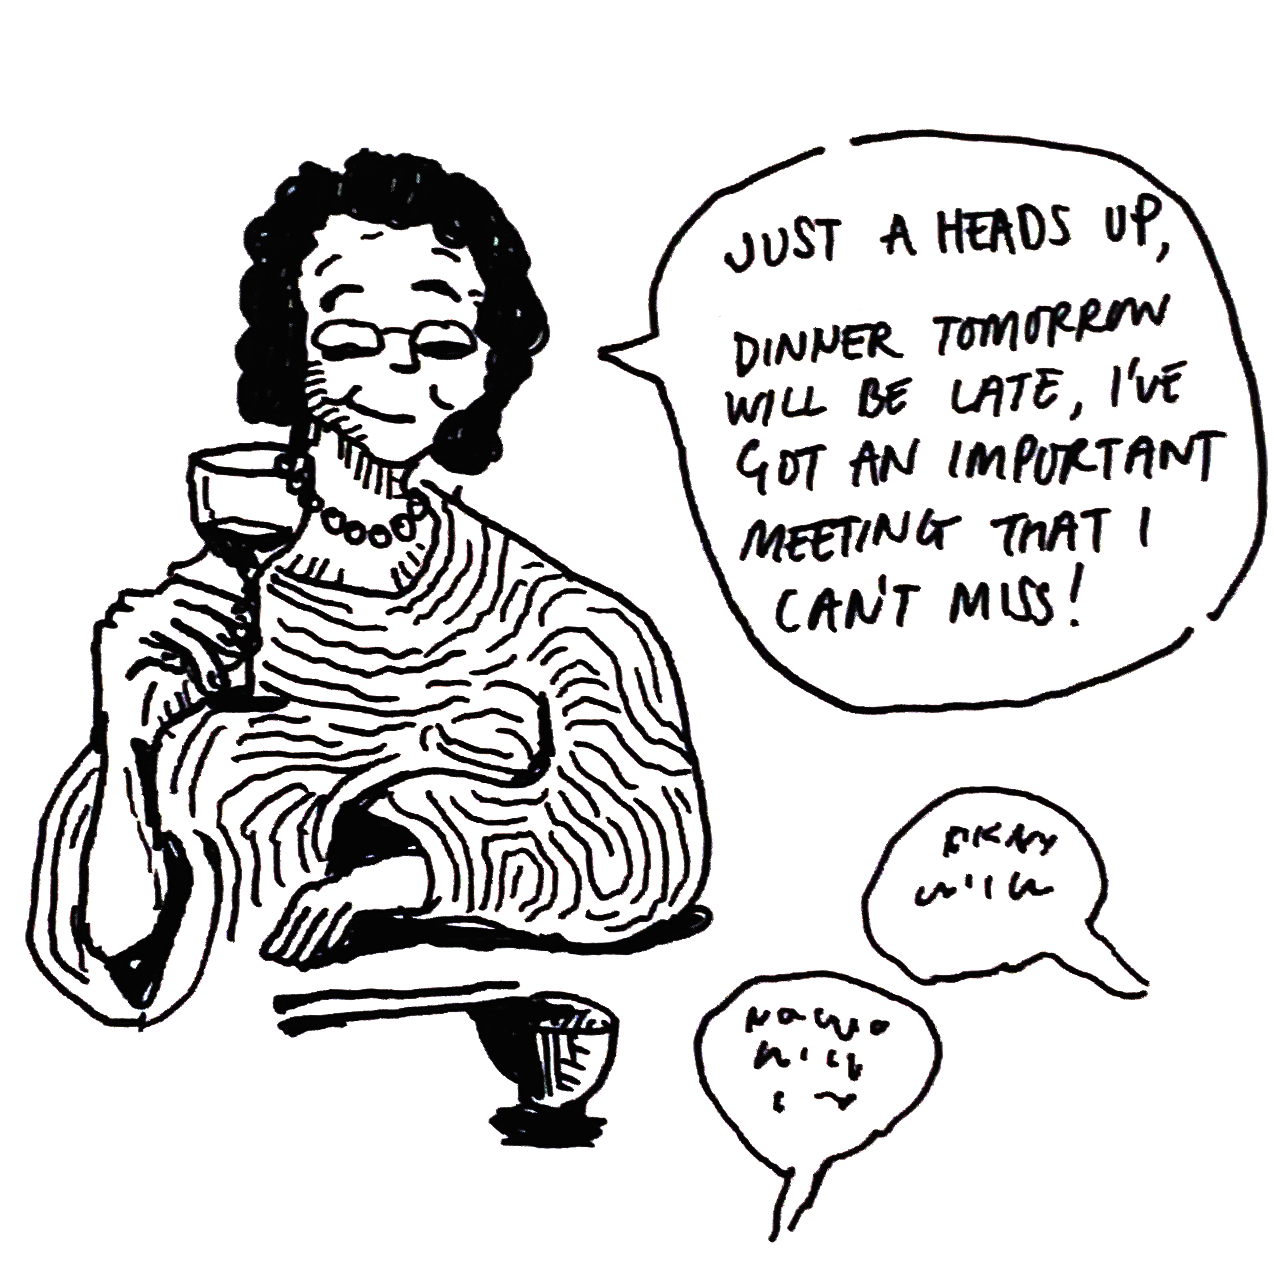 JUST A HEADS UP,
DINNER TOMORROW
WILL BE LATE, I'VE
GOT AN IMPORTANT
MEETING THAT I
CAN'T MISS!